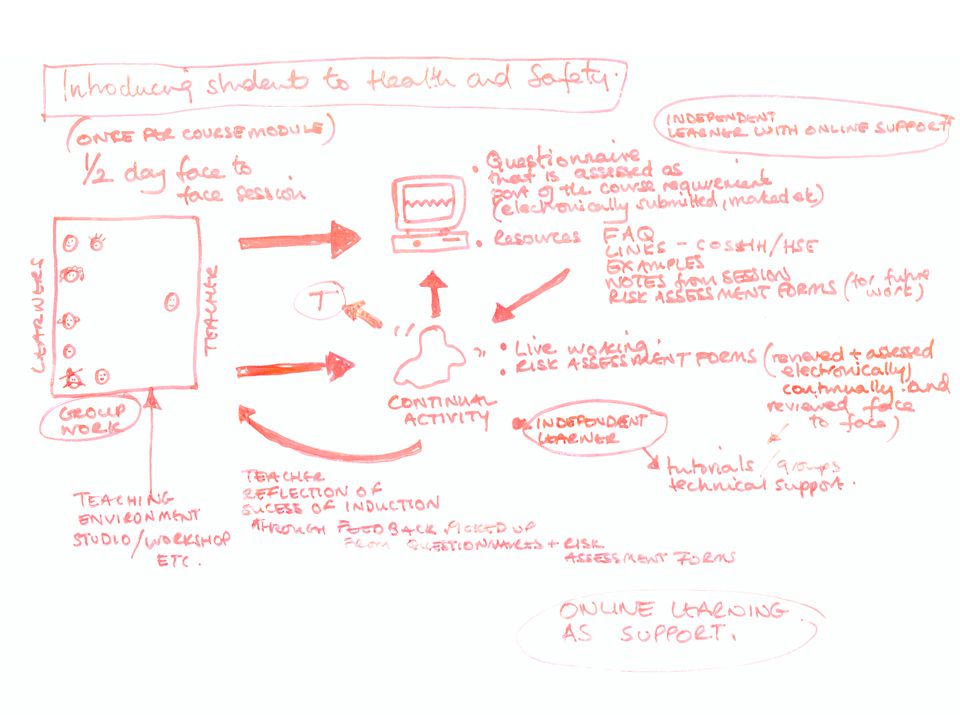 Introducing students to Health and Safety.
(ONCE PER COURSE MODULE)
1/2 day face to
face session
INDEPENDENT
LEARNER WITH ONLINE SUPPORT
• Questionnaire
that is assessed as
part of the course requirement
(electronically submitted, marked etc)
• Resources FAQ
LINKS - COSHH/HSE
EXAMPLES
NOTES from SESSION
RISK ASSESSMENT FORMS (for future
work)
LEARNERS
TEACHER
GROUP
WORK
T
• Live working.
• RISK ASSESSMENT FORMS (reviewed + assessed
electronically
continually and
reviewed face
to face)
CONTINUAL
ACTIVITY
INDEPENDENT
LEARNER
tutorials / groups
technical support.
TEACHING
ENVIRONMENT
STUDIO/WORKSHOP
ETC.
TEACHER
REFLECTION OF
SUCESS OF INDUCTION
THROUGH FEEDBACK PICKED UP
FROM QUESTIONNAIRES + RISK
ASSESSMENT FORMS
ONLINE LEARNING
AS SUPPORT.